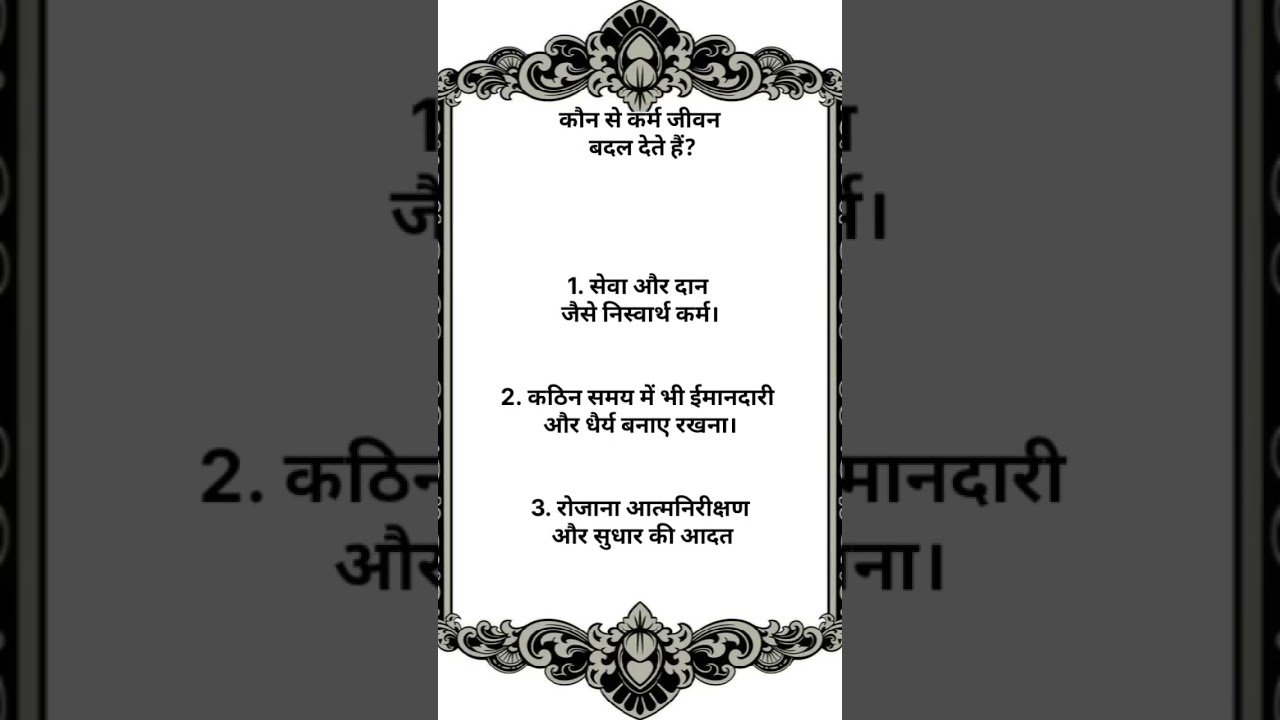 कौन से कर्म जीवन
बदल देते हैं?
1. सेवा और दान
जैसे निस्वार्थ कर्म।
2. कठिन समय में भी ईमानदारी
और धैर्य बनाए रखना।
3. रोजाना आत्मनिरीक्षण
और सुधार की आदत